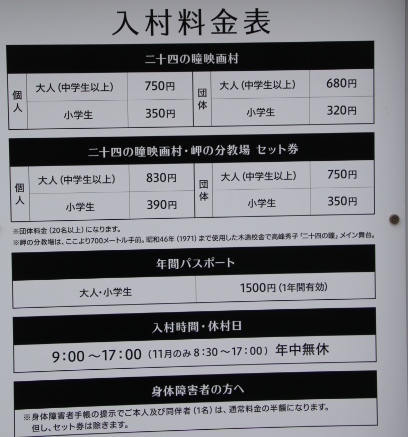 入村料金表
二十四の瞳映画村
個人 大人（中学生以上） 750円 団体 大人（中学生以上） 680円
小学生 350円 小学生 320円
二十四の瞳映画村・岬の分教場 セット券
個人 大人（中学生以上） 830円 団体 大人（中学生以上） 750円
小学生 390円 小学生 350円
※団体料金（20名以上）になります。
※岬の分教場は、ここより700メートル手前。昭和46年（1971）まで使用した木造校舎で高峰秀子「二十四の瞳」メイン舞台。
年間パスポート
大人・小学生 1500円（1年間有効）
入村時間・休村日
9:00〜17:00（11月のみ8:30〜17:00）年中無休
身体障害者の方へ
※身体障害者手帳の提示でご本人及び同伴者（1名）は、通常料金の半額になります。
但し、セット券は除きます。